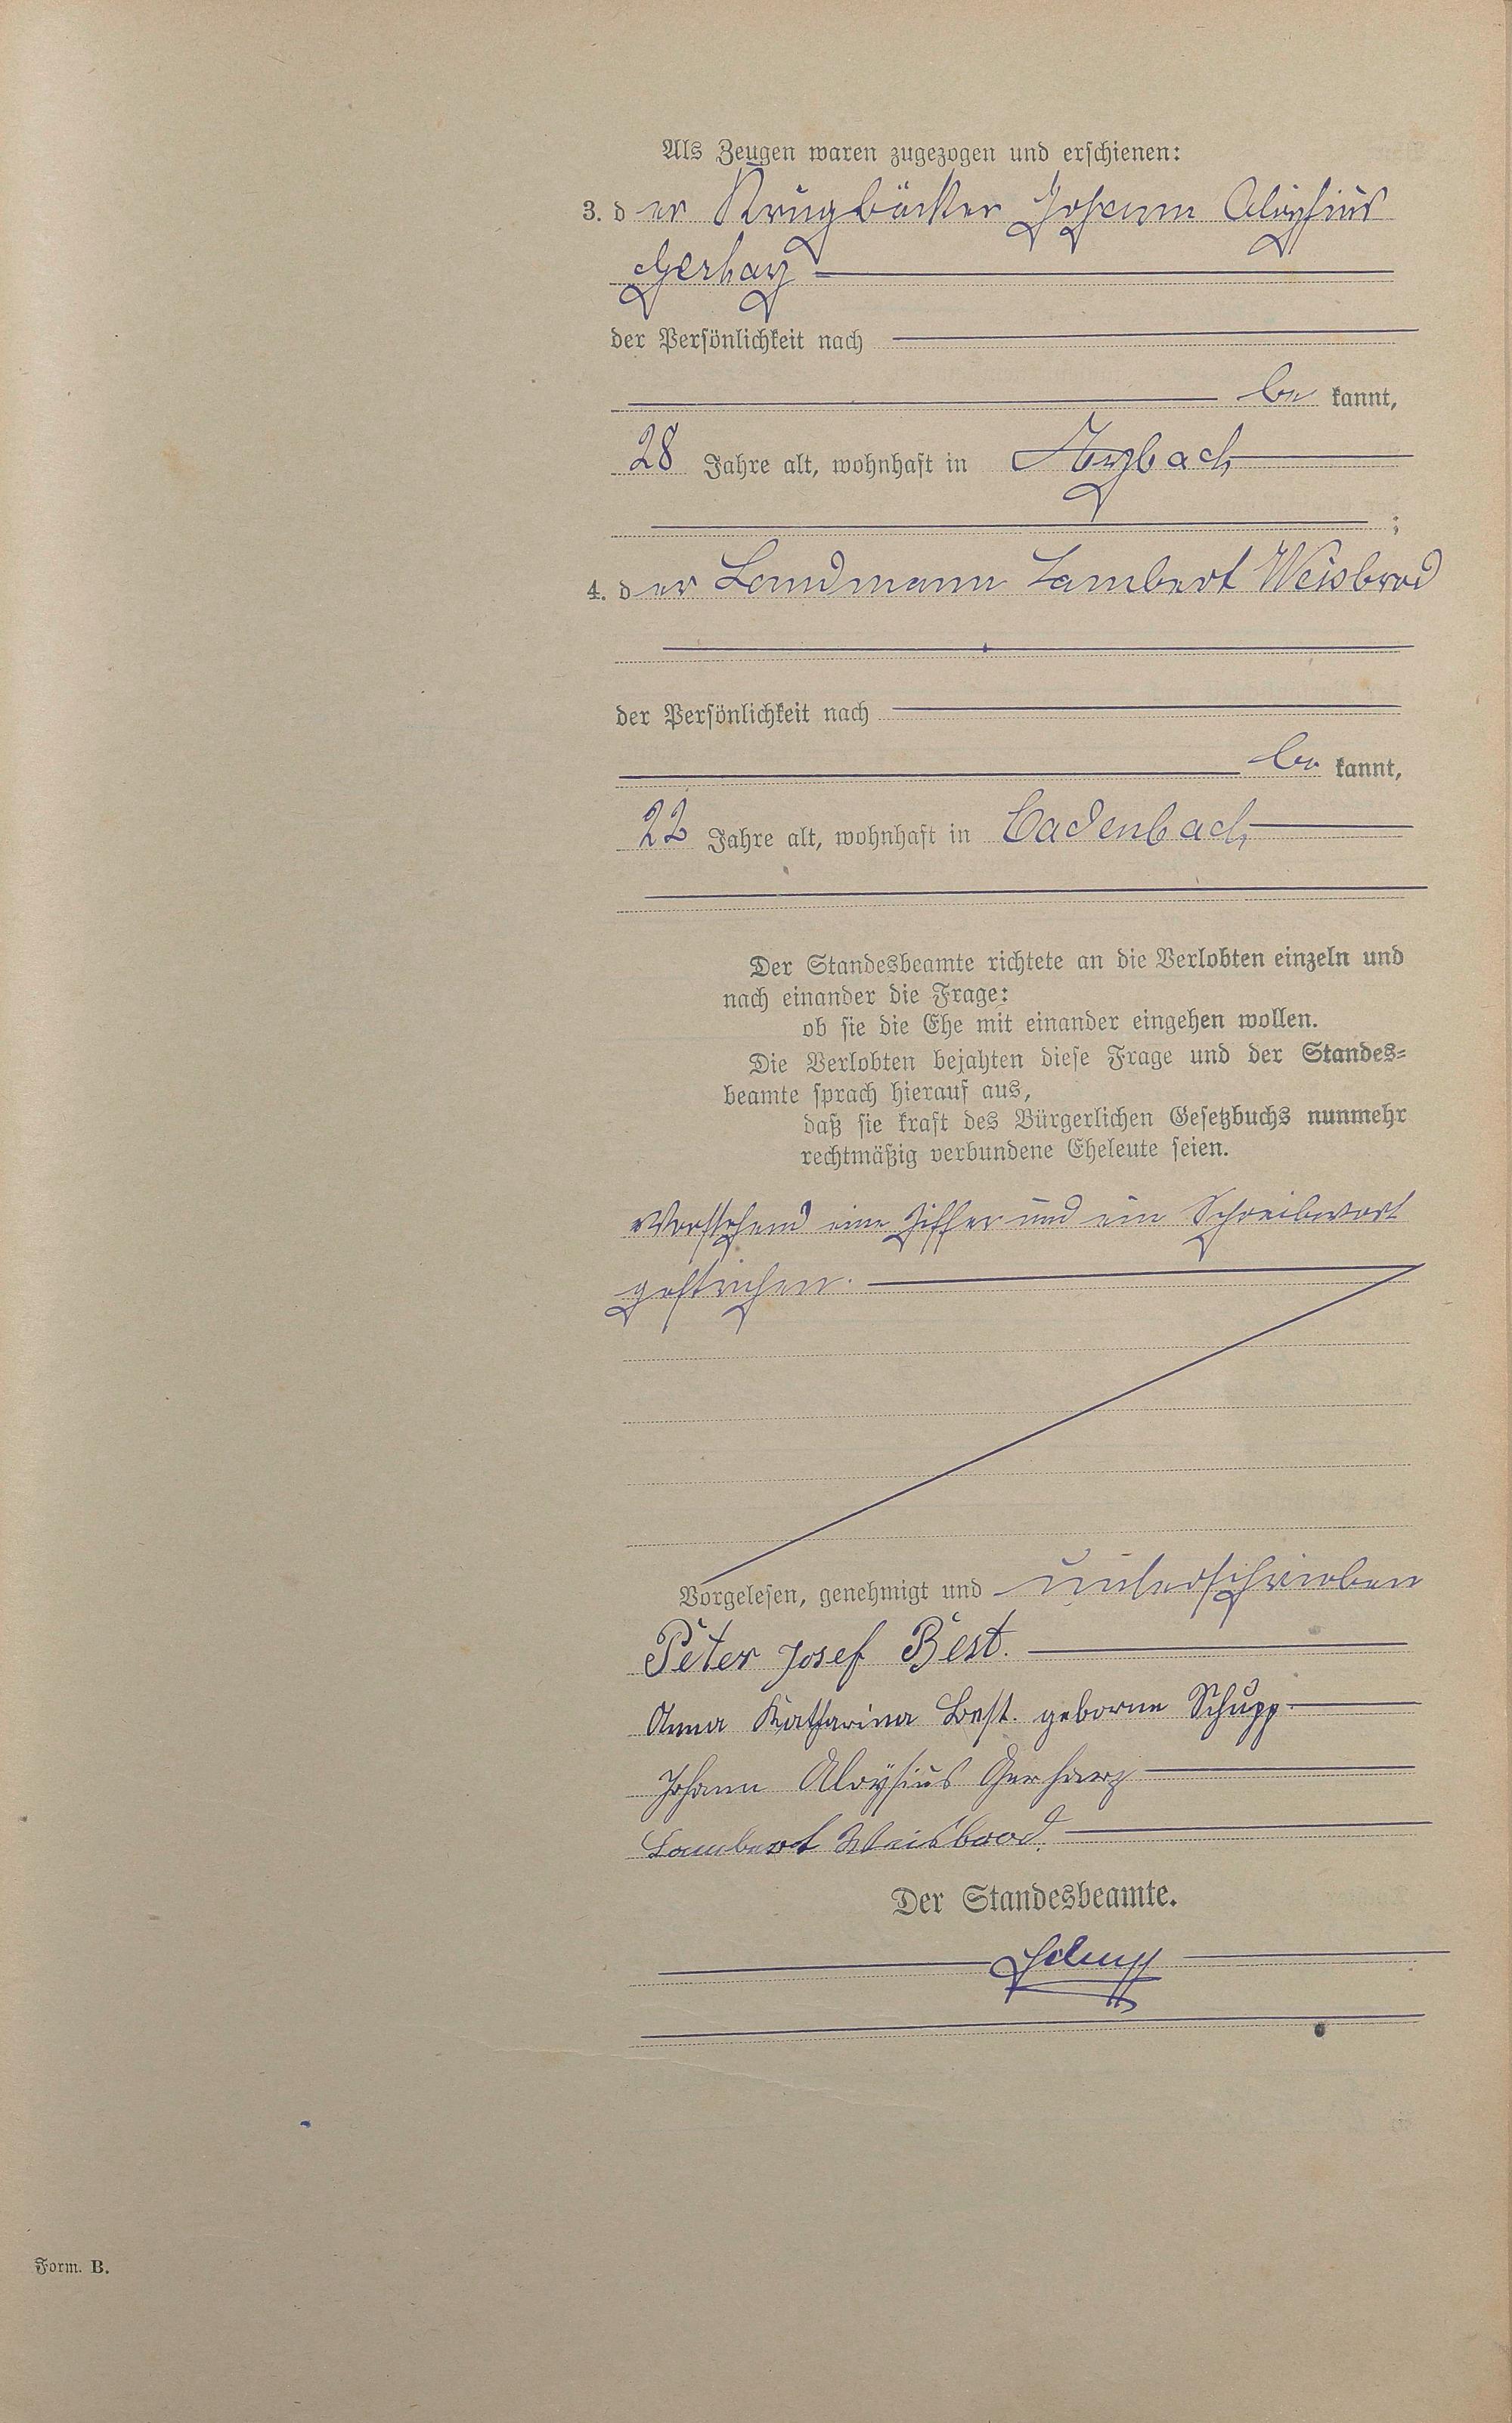 Als Zeugen waren zugezogen und erschienen:
3. der Krugbäcker Johann Aloysius
Gerharz
der Persönlichkeit nach
be kannt,
28 Jahre alt, wohnhaft in Arzbach
;
4. der Landmann Lambert Weisbrod
der Persönlichkeit nach
be kannt,
22 Jahre alt, wohnhaft in Cadenbach
Der Standesbeamte richtete an die Verlobten einzeln und
nach einander die Frage:
ob sie die Ehe mit einander eingehen wollen.
Die Verlobten bejahten diese Frage und der Standes-
beamte sprach hierauf aus,
daß sie kraft des Bürgerlichen Gesetzbuchs nunmehr
rechtmäßig verbundene Eheleute seien.
Vorstehend eine Ziffer und ein Schreibwort
gestrichen.
Vorgelesen, genehmigt und unterschrieben
Peter Josef Best.
Anna Katharina Best. geborne Schupp
Johann Aloysius Gerharz
Lambert Weisbrod.
Der Standesbeamte.
Form. B.